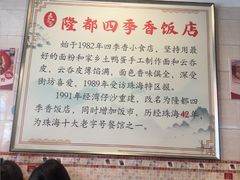 隆都四季香饭店
始于1982年四季香小食店，坚持用最
好的面粉和家乡土鸭蛋手工制作面和云吞
皮，云吞皮薄馅满，面色香味俱全，深受
街坊喜爱，1989年受访珠海特区报。
1991年经渭仔沙重建，改名为隆都四
季香饭店，同时增加饭市，历经珠海42年
为珠海十大老字号餐馆之一。